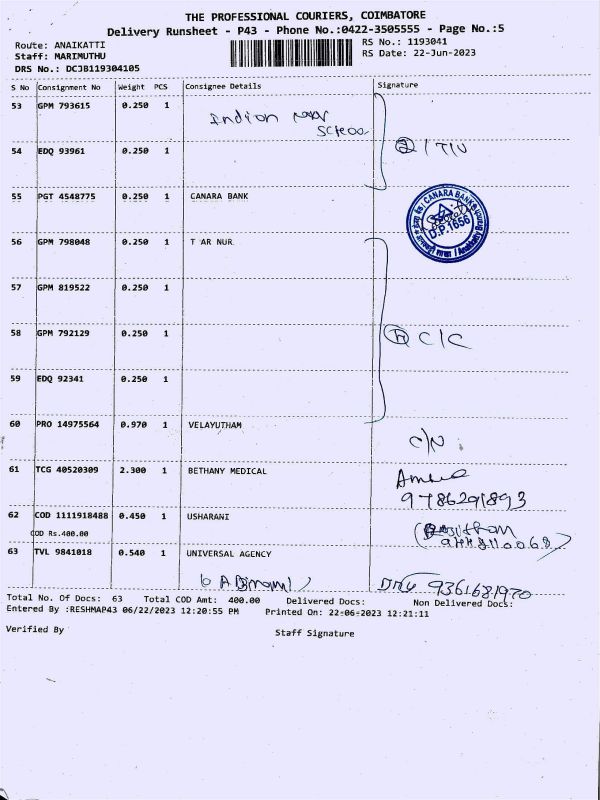 THE PROFESSIONAL COURIERS, COIMBATORE
Delivery Runsheet - P43 - Phone No.:0422-3505555 - Page No.:5
Route: ANAIKATTI
RS No.: 1193041
Staff: MARIMUTHU
RS Date: 22-Jun-2023
DRS No.: DCJB119304105
S No Consignment No Weight PCS Consignee Details Signature
53 GPM 793615 0.250 1
Indian
54 EDQ 93961 0.250 1
55 PGT 4548775 0.250 1 CANARA BANK
CANARA BANK
D.P.1656
56 GPM 798048 0.250 1 T AR NUR
57 GPM 819522 0.250 1
58 GPM 792129 0.250 1
C/C
59 EDQ 92341 0.250 1
60 PRO 14975564 0.970 1 VELAYUTHAM
C/N
61 TCG 40520309 2.300 1 BETHANY MEDICAL
9786291893
62 COD 1111918488 0.450 1 USHARANI
COD Rs.400.00
63 TVL 9841018 0.540 1 UNIVERSAL AGENCY
9361681970
Total No. Of Docs: 63 Total COD Amt: 400.00 Delivered Docs: Non Delivered Docs:
Entered By :RESHMAP43 06/22/2023 12:20:55 PM Printed On: 22-06-2023 12:21:11
Verified By Staff Signature